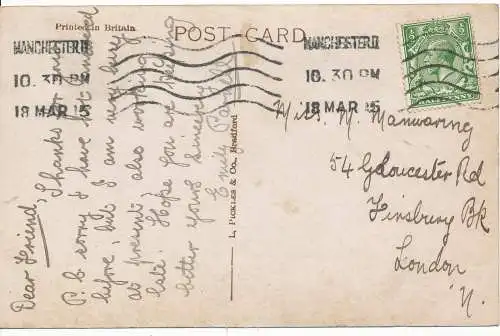 Printed in Britain
POST CARD
MANCHESTER
10. 30 PM
18 MAR 15
MANCHESTER
10. 30 PM
18 MAR 15
Dear Friend, Thanks for
P. C sorry I have not answered
before, but I am very busy
at present also working
late. Hope you are keeping
better yours sincerely
Emily
L. PICKLES & Co., Bradford
Miss M. Manwaring
54 Gloucester Rd
Finsbury Pk
London
N.